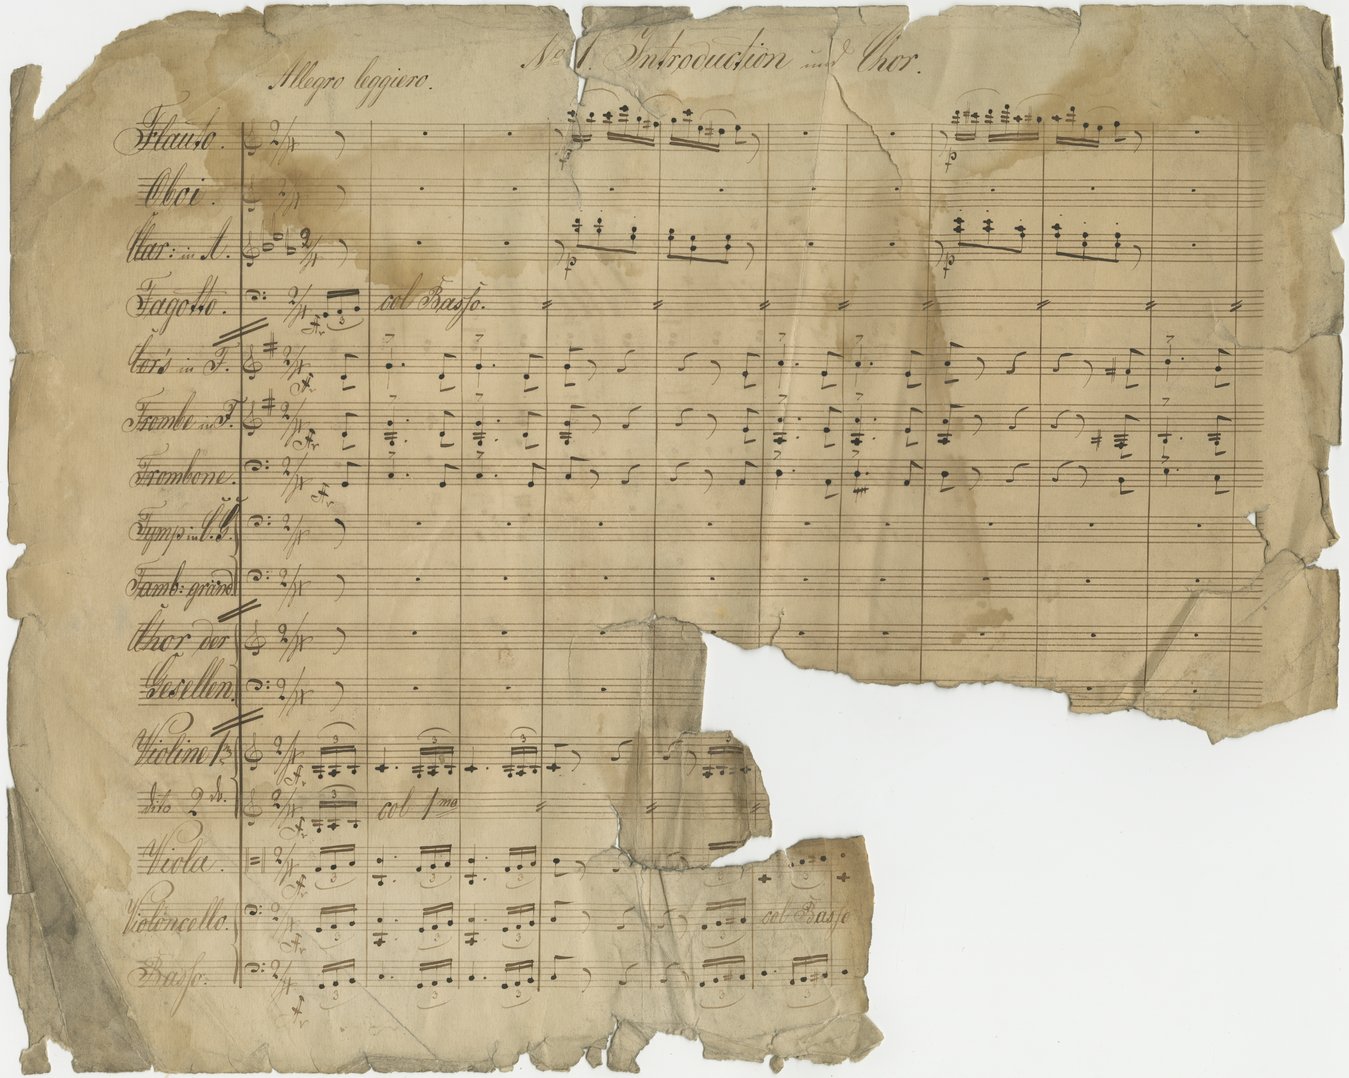 No 1. Introduction und Chor.
Allegro leggiero.
Flauto.
Oboi.
Clar: in A.
Fagotto. col Basso.
3
Cor's in F.
Trombe in F.
Trombone.
Tymp in C. G.
Tamb: grand
Chor der
Gesellen.
Violine 1mo
dito 2do. col 1mo
Viola.
Violoncello. col Basso
Basso.